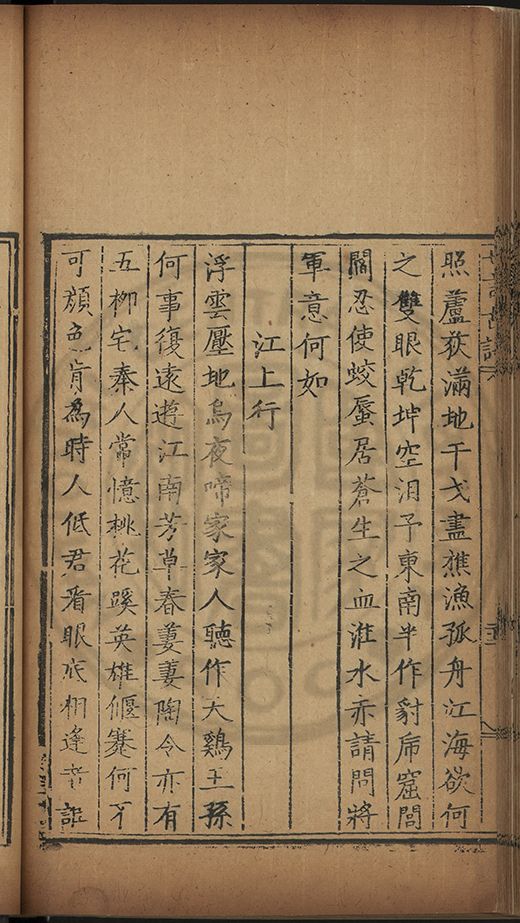 照蘆荻滿地干戈盡樵漁孤舟江海欲何
之雙眼乾坤空泪予東南半作豺乕窟閶
闔忍使蛟蜃居蒼生之血淮水赤請問將
軍意何如
江上行
浮雲壓地烏夜啼家家人聽作天鷄王孫
何事復遠遊江南芳草春萋萋陶令亦有
五柳宅秦人常憶桃花蹊英雄偃蹇何不
可顔色肯為時人低君看眼底相逢者誰